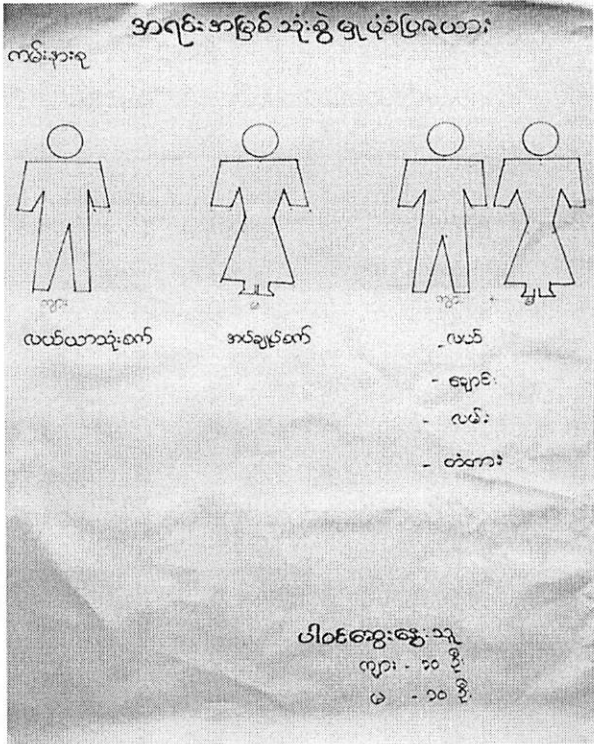 အရင်းအမြစ် သုံးစွဲ မှု ပုံစံပြဇယား
ကမ်းနားစု
ကျား မ ကျား မ
လယ်ယာသုံးစက် အပ်ချုပ်စက် - လယ်
- ချောင်း
- လမ်း
- တံတား
ပါဝင်ဆွေးနွေးသူ
ကျား - ၁၀ ဦး
မ - ၁၀ ဦး